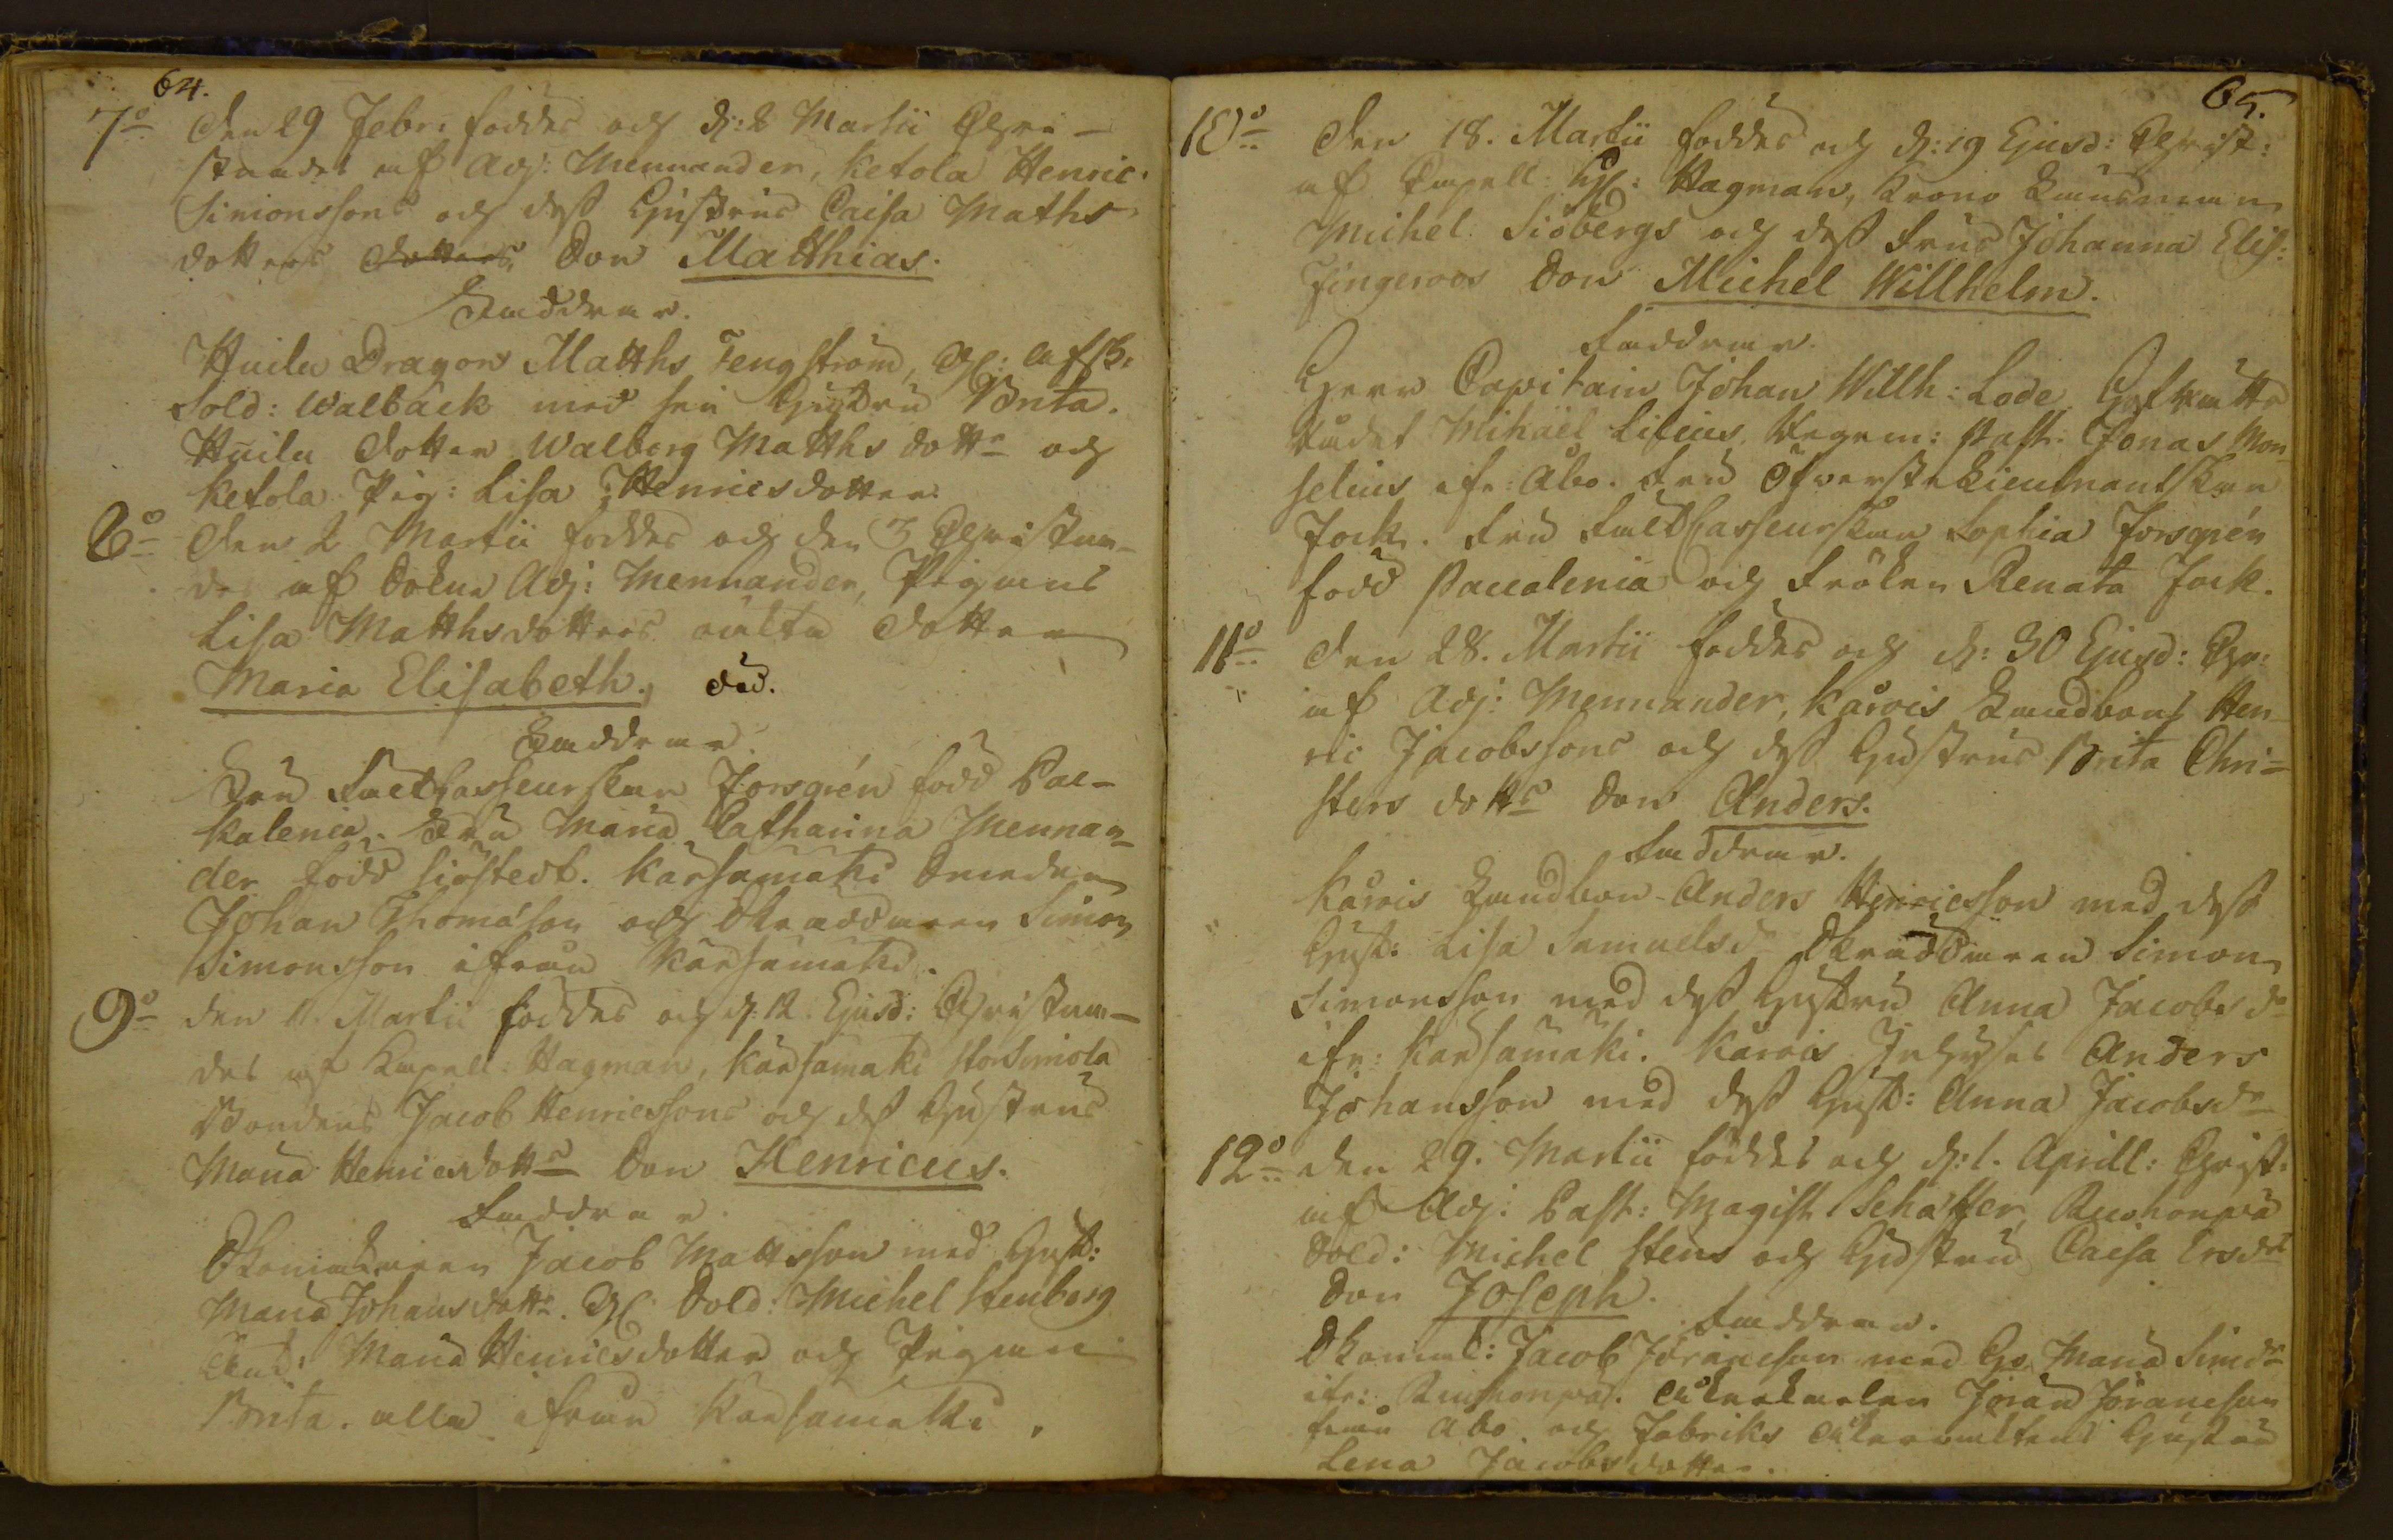 64.
7:o Den 29 Febr: föddes och d: 2 Martii Chri-
stnades af Adj: Mennander, Ketola Henric
Simonssons och dess Hustrus Caisa Maths
dotters dotters, Son Matthias.
Faddrar.
Huilu Dragon Matths Tengström, Gl: Afsk:
Sold: Walbäck med sin Hustru Brita.
Huilu dotter Walborg Matths dottr och
Ketola Pig: Lisa Henricsdotter.
8:o Den 2 Martii föddes och den 3 Christna-
des af Adj: Mennander, Pigans
Lisa Matthsdotters oäkta dotter
Maria Elisabeth. död.
Faddrar.
Fru Fältkasseurskan Forsgrén född Pac-
kalenia. Fru Maria Catharina Mennan-
der född Siöstedt. Kärsämäki Smeden
Johan Thomasson och Skräddaren Simon
Simonsson ifrån Kärsämäki.
9:o den 11. Martii föddes och d: 12. Ejusd: Christna-
des af Capell: Hagman, Kärsämäki Storsimola
Bondens Jacob Henricssons och dess Hustrus
Maria Henricsdottrs Son Henricus.
Faddrar.
Skomakaren Jacob Mattsson med Hust:
Maria Johansdottr. Gl: Sold: Michel Stenberg
Maria Henricsdotter och Pigan
Brita. alla ifrån Kärsämäki.
65.
10:o Den 18. Martii föddes och d: 19 Ejusd: Christ:
af Capell: Hagman, Krono Länsman
Michel Siöbergs och dess Frus Johanna Elis:
Fingeroos Son Michel Willhelm.
Faddrar.
Herr Capitain Johan Willh: Lode, Hofrätts
Rådet Mihaël Lilius, Regem: Past: Jonas Mon-
selius ifr: Åbo. Fru Öfverste Lieutnantskan
Jock. Fru Fältkasseurskan Sophia Forsgrén
född Paccalenia och Fröken Renata Jock.
11:o Den 28. Martii föddes och d: 30 Ejusd: Chr:
af Adj: Mennander, Karvis Landbons Hen-
ric Jacobssons och dess Hustrus Brita Chri-
sters dottrs Son Anders.
Faddrar.
Karvis Landbon Anders Henricsson med dess
Hust: Lisa Samuelsdr Skräddaren Simon
Simonsson med dess Hustru Anna Jacobsdr
ifr: Kärsämäki. Karvis Inhyses Anders
Johansson med dess Hust: Anna Jacobsdr
12:o den 29. Martii föddes och d: 1. Aprill: Christ:
af Adj: Past: Magist: Schatter, Ruohonpä
Sold: Michel Stens och Hustrus Caisa Ersdrs
Son Joseph.
Faddrar.
Skomak: Jacob Jöransson med Hu Maria Simdr
ifr: Ruohonpä. Jöran Jöransson
från Åbo, och Fabriks Hustru
Lena Jacobsdotter.